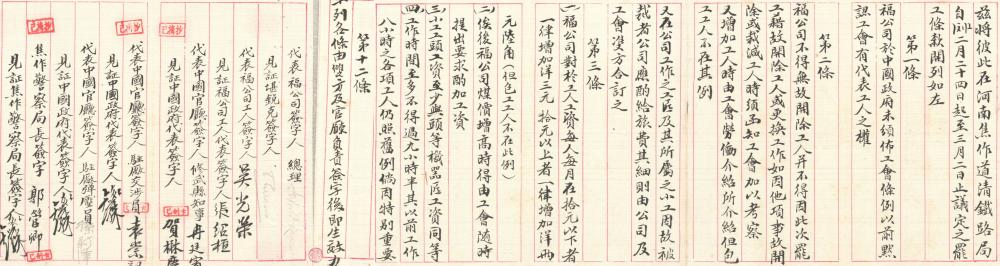 兹將彼此在河南焦作道清鐵路局
自 二月二十四日起至三月二日止議定之罷
工條款開列如左
第一條
福公司於中國政府未頒佈工會條例以前默
認工會有代表工人之權
第二條
福公司不得無故開除工人并不得因此次罷
工藉故開除工人或更換工作如因他項事故開
除或裁減工人時須函知工會加以考察
又增加工人時由工會勞働介紹所介紹但包
工工人不在其例
又在公司工作之工匠及其所屬之小工因故被
裁者公司應酌給旅費其細則由公司及
工會雙方合訂之
第三條
一福公司對於工人工資每人每月在拾元以下者
一律增加洋三元 拾元以上者一律增加洋兩
元陸角(但包工工人不在此例)
二俟後福公司煤價增高時得由工會隨時
提出要求酌加工資
三小工工頭工資至少與頭等機器匠工資同等
四工作時間至多不得過九小時半其以前工作
八小時之各項工人仍照舊例倘因特別重要
第十二條
列各條由雙方及官廳負責簽字後即生效力
代表福公司簽字人 總理
見証堪銳克簽字人
代表福公司工人簽字人 吳光榮
見証福公司工人代表簽字人張經桓
代表中國官廳簽字人 修武縣知事冉廷賓
見証中國政府代表簽字人 賀
已制卡
已摘抄
代表中國官廳簽字人 駐廠交涉員袁崇
見証中國政府代表簽字人
已摘抄
代表中國官廳簽字人 駐廠彈壓員
見証中國政府代表簽字人
焦作警察局長簽字 郭管卿
見証焦作警察局長簽字人
已摘抄